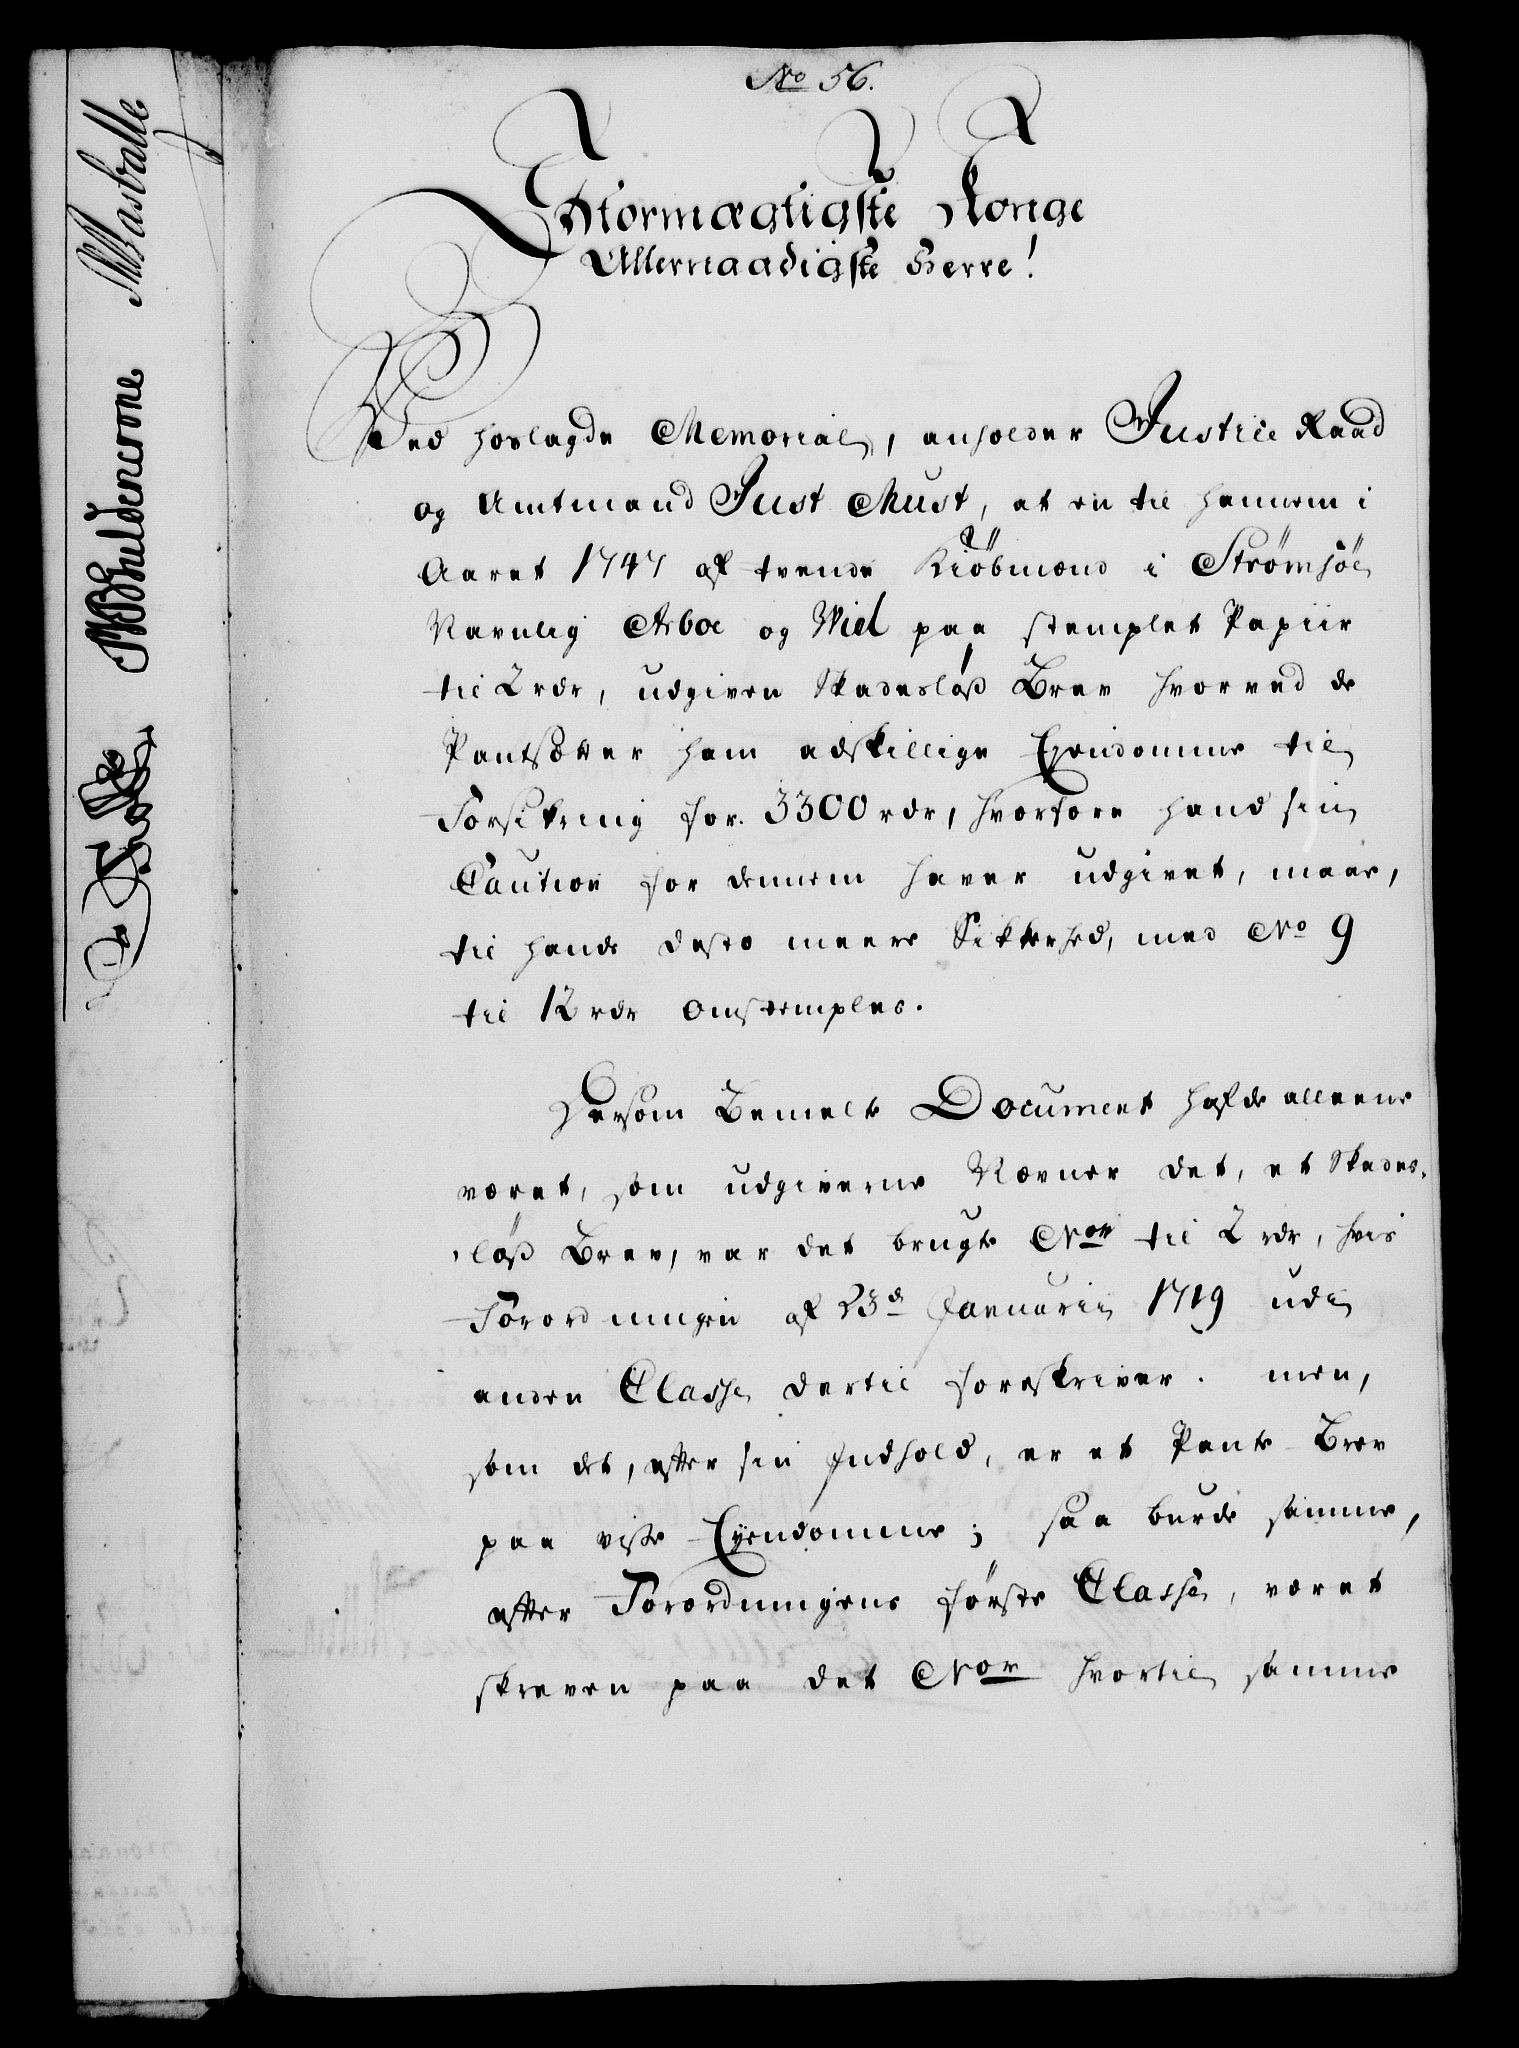 No 56.
Stormægtigste Konge
Allernaadigste Herre!
Ved hoslagde Memorial, anholder Justice Raad
og Amtmand Just Must, at en til hannem i
Aaret 1747 af tvende Kiöbmænd i Strømsöe
Navnlig Arboe og Wiel paa stemplet Papiir
til 2 rdr, udgiven Skadeslöß Brev hvorved de
Pantsætter ham adskillige Eyendomme til
Forsikring for 3300 rdr, hvorfore hand sin
Caution for dennem haver udgivet, maae,
til hands desto meere Sikkerhed, med No 9
til 12 rdr omstemples.
Dersom Bemelte Document hafde alleene
været, som udgiverne Nævner det, et Skades-
-löß Brev, var det brugte Nor til 2 rdr, hvis
Forordningen af 23d Januarii 1719 udi
anden Classe dertil foreskriver. men,
som det, efter sin Indhold, er et Pante Brev
paa visse Eyendomme; saa burde samme,
efter Forordningens förste Classe, været
skreven paa det Nor hvortil samme